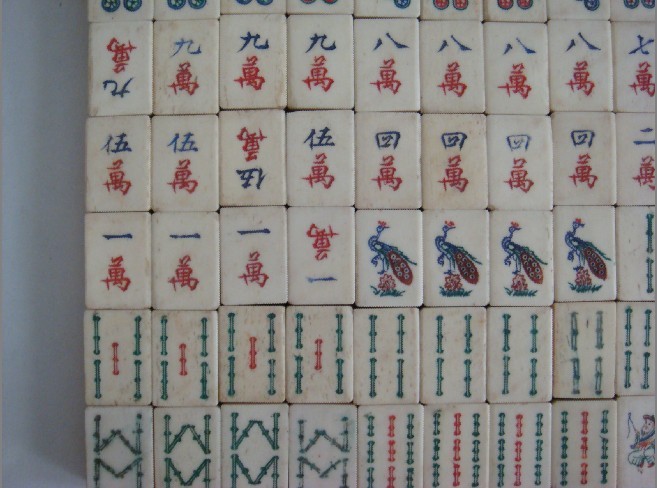 九 九 九 九 八 八 八 八 七
萬 萬 萬 萬 萬 萬 萬 萬 萬
伍 伍 伍 伍 四 四 四 四 二
萬 萬 萬 萬 萬 萬 萬 萬 萬
一 一 一 一
萬 萬 萬 萬